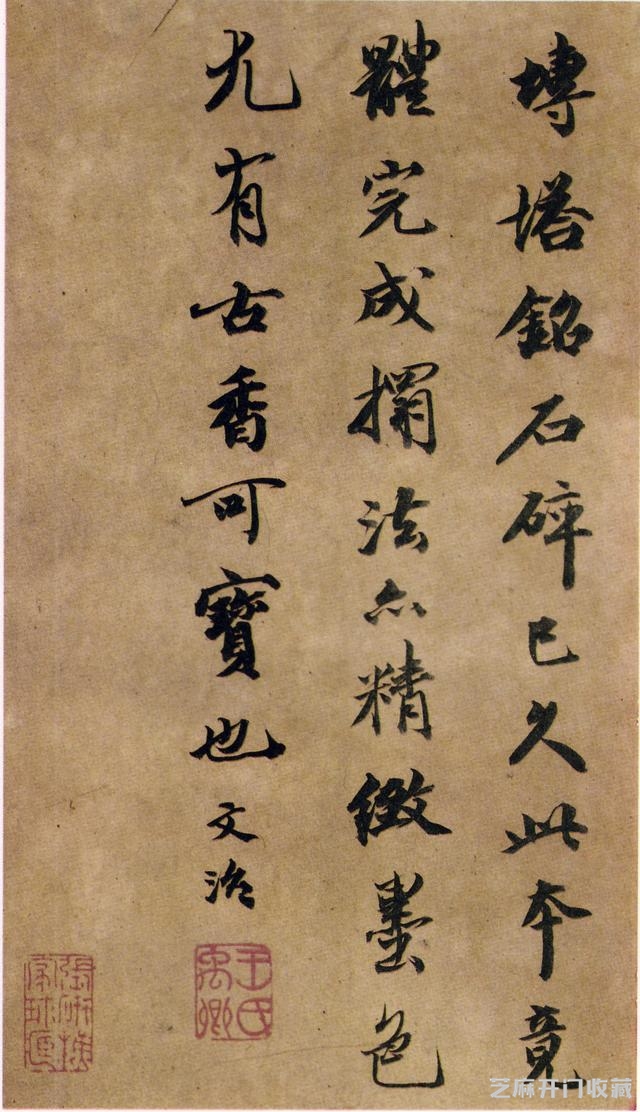 塼塔銘石碎已久此本竟
體完成搨法亦精緻墨色
尤有古香可寶也
文治
王氏禹卿
芝麻开门收藏